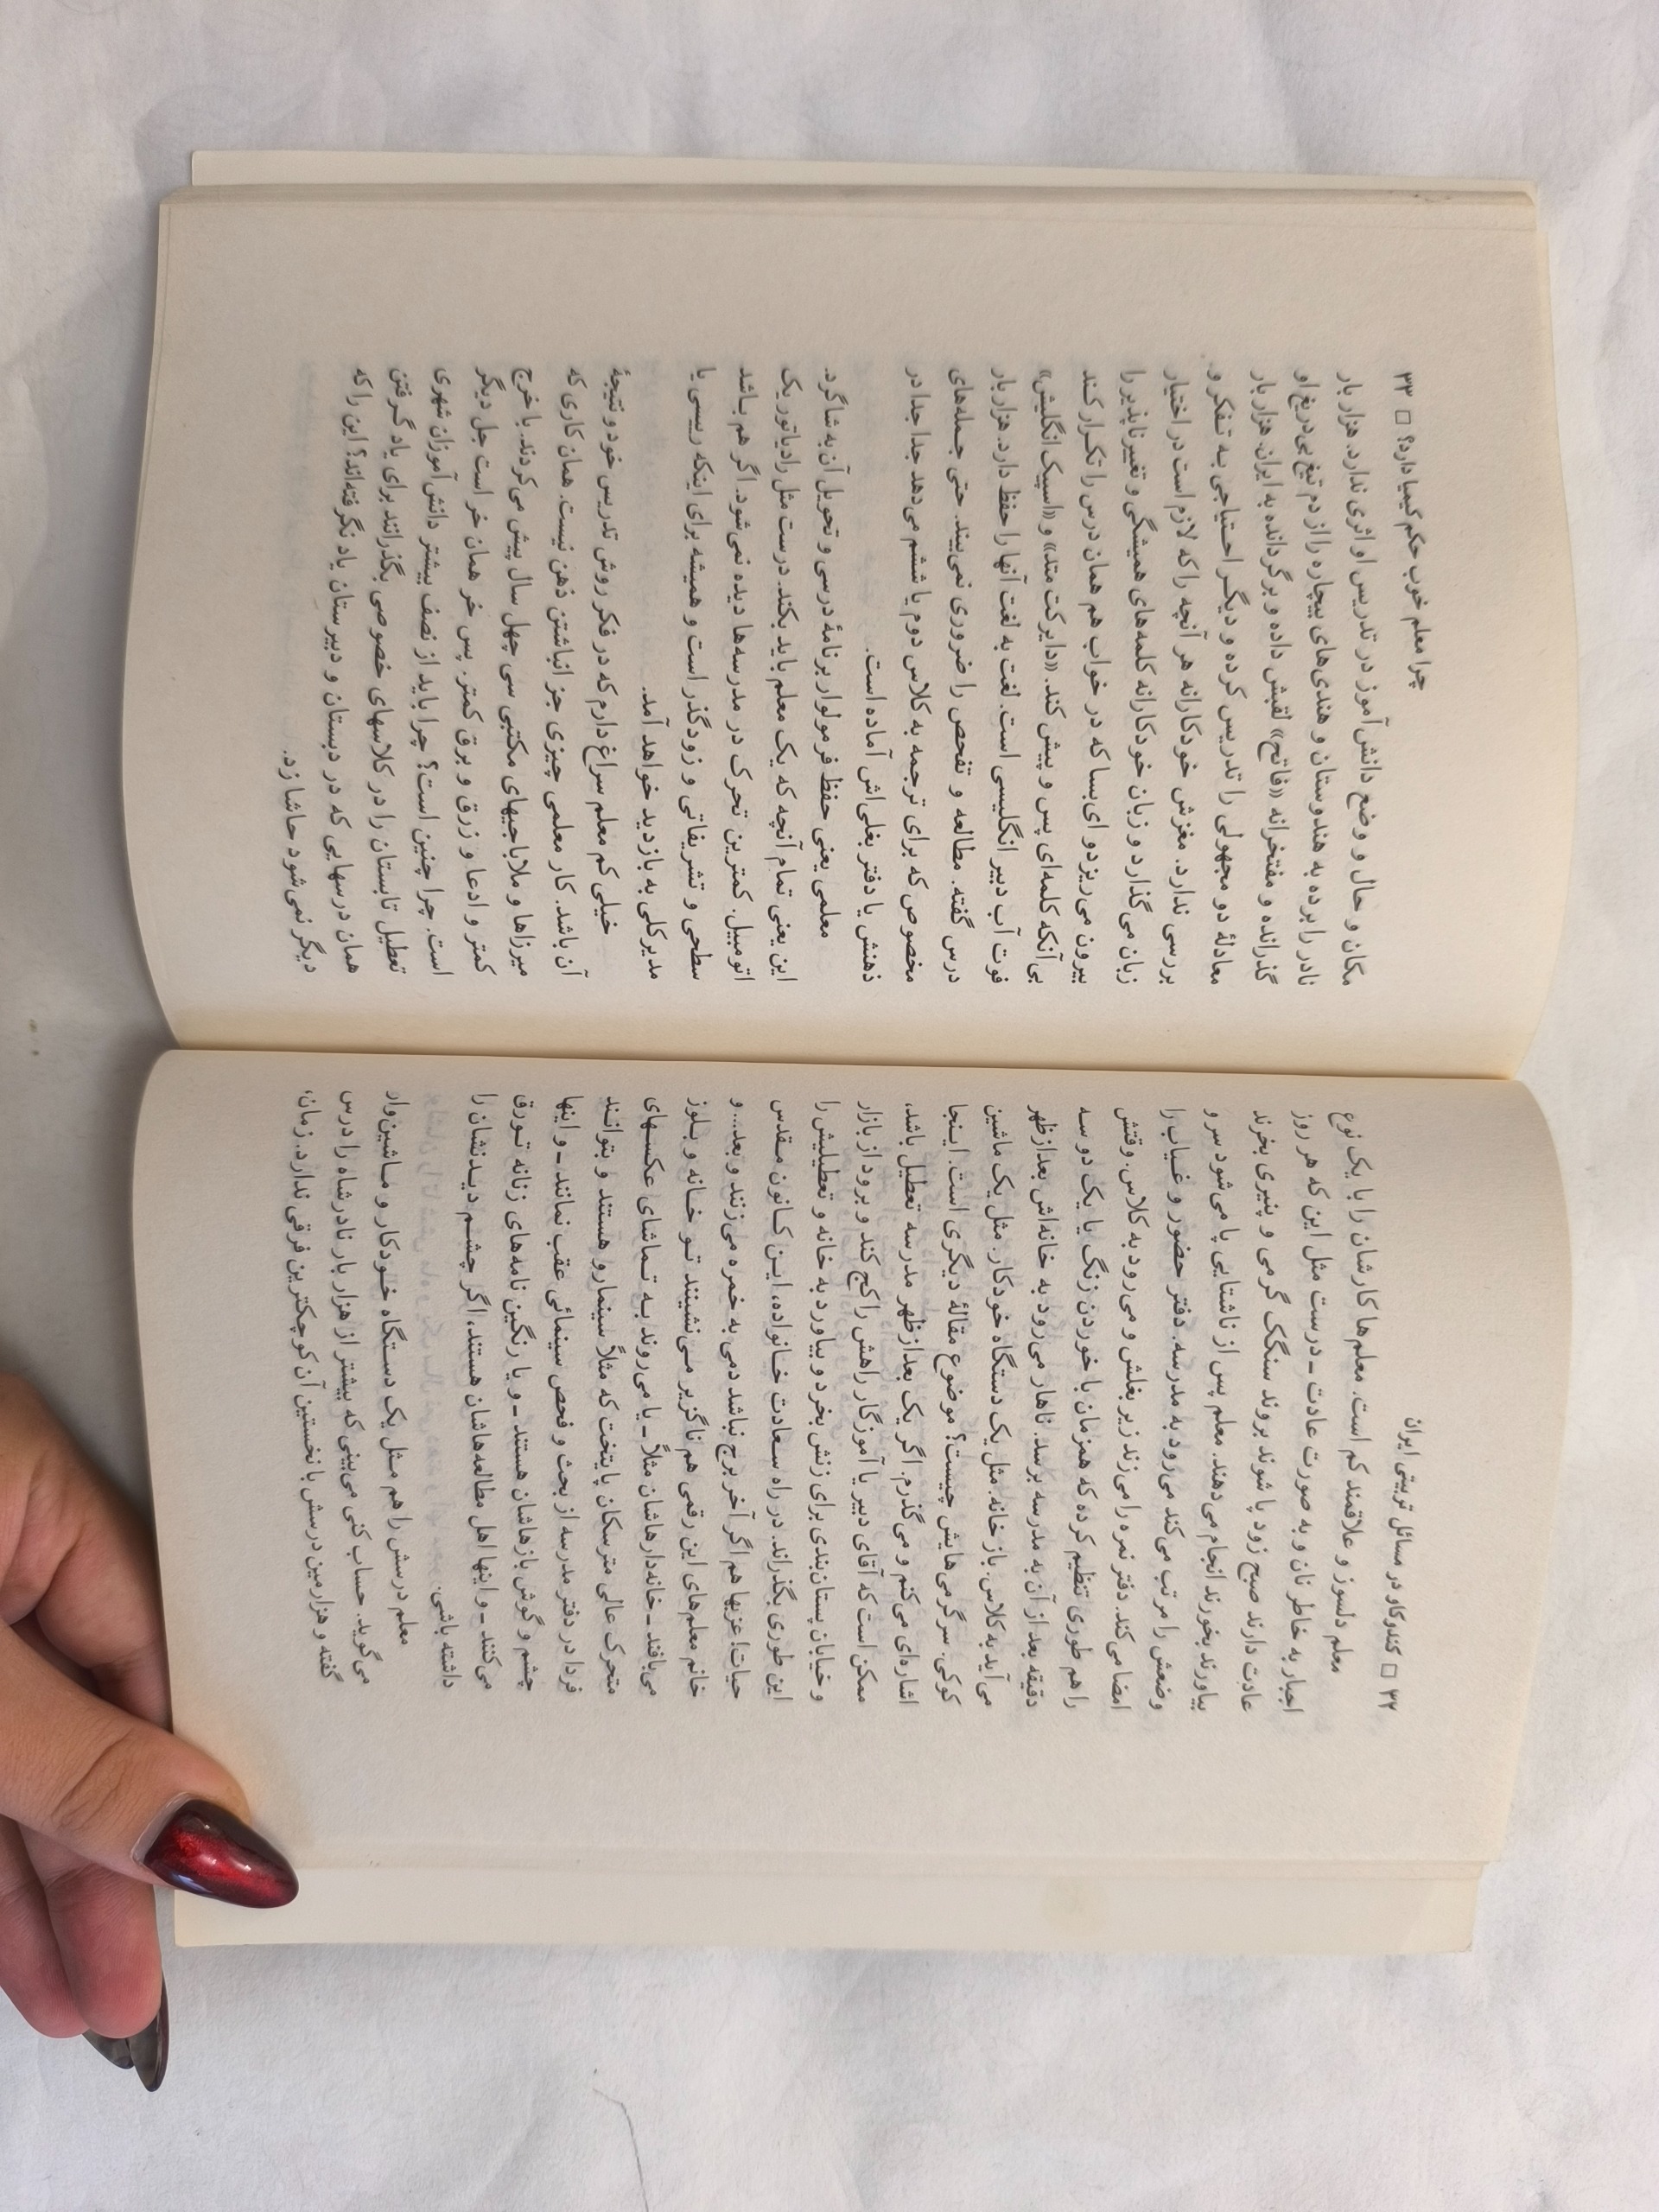 ۳۲ □ کندوکاو در مسائل تربیتی ایران
معلم دلسوز و علاقمند کم است. معلم‌ها کارشان را با یک نوع
اجبار به خاطر نان و به صورت عادت ـ درست مثل این که هر روز
عادت دارند صبح زود پا شوند بروند سنگک گرمی و پنیری بخرند
بیاورند بخورند انجام می‌دهند. معلم پس از ناشتایی پا می‌شود سر و
وضعش را مرتب می‌کند می‌رود به مدرسه. دفتر حضور و غیاب را
امضا می‌کند. دفتر نمره را می‌زند زیر بغلش و می‌رود به کلاس. وقتش
را هم طوری تنظیم کرده که همزمان با خوردن زنگ یا یک دو سه
دقیقه بعد از آن به مدرسه برسد. ناهار می‌رود به خانه‌اش بعدازظهر
می‌آید به کلاس. باز خانه. مثل یک دستگاه خودکار. مثل یک ماشین
کوکی. سرگرمی‌هایش چیست؟ موضوع مقالهٔ دیگری است. اینجا
اشاره‌ای می‌کنم و می‌گذرم. اگر یک بعدازظهر مدرسه تعطیل باشد،
ممکن است که آقای دبیر یا آموزگار راهش را کج کند و برود از بازار
و خیابان پستان‌بندی برای زنش بخرد و بیاورد به خانه و تعطیلیش را
این طوری بگذراند. در راه سعادت خانواده، این کانون مقدس
حیات! عزبها هم اگر آخر برج نباشد دمی به خمره می‌زنند و بعد... و
خانم معلم‌های این رقمی هم ناگزیر می‌نشینند تو خانه و بلوز
می‌بافند ـ خانه‌دارهاشان مثلاً ـ یا می‌روند به تماشای عکسهای
متحرک عالی مترسکان پایتخت که مثلاً سینمارو هستند و بتوانند
فردا در دفتر مدرسه از بحث و فحص سینمائی عقب نمانند ـ و اینها
چشم و گوش بازهاشان هستند ـ و یا رنگین نامه‌های زنانه تورق
می‌کنند ـ و اینها اهل مطالعه‌هاشان هستند، اگر چشم دیدنشان را
داشته باشی.
معلم درسش را هم مثل یک دستگاه خودکار و ماشین‌وار
می‌گوید. حساب کنی می‌بینی که بیشتر از هزار بار نادرشاه را درس
گفته و هزارمین درسش با نخستین آن کوچکترین فرقی ندارد. زمان،
چرا معلم خوب حکم کیمیا دارد؟ □ ۳۳
مکان و حال و وضع دانش‌آموز در تدریس او اثری ندارد. هزار بار
نادر را برده به هندوستان و هندی‌های بیچاره را از دم تیغ بی‌دریغ او
گذرانده و مفتخرانه «فاتح» لقبش داده و برگردانده به ایران. هزار بار
معادلهٔ دو مجهولی را تدریس کرده و دیگر احتیاجی به تفکر و
بررسی ندارد. مغزش خودکارانه هر آنچه را که لازم است در اختیار
زبان می‌گذارد و زبان خودکارانه کلمه‌های همیشگی و تغییرناپذیر را
بیرون می‌ریزد و ای‌بسا که در خواب هم همان درس را تکرار کند
بی‌آنکه کلمه‌ای پس و پیش کند. «دایرکت متد» و «اسپیک انگلیش»
فوت آب دبیر انگلیسی است. لغت به لغت آنها را حفظ دارد. هزار بار
درس گفته. مطالعه و تفحص را ضروری نمی‌بیند. حتی جمله‌های
مخصوص که برای ترجمه به کلاس دوم یا ششم می‌دهد جدا جدا در
ذهنش یا دفتر بغلی‌اش آماده است.
معلمی یعنی حفظ فرمولوار برنامهٔ درسی و تحویل آن به شاگرد.
این یعنی تمام آنچه که یک معلم باید بکند. درست مثل رادیاتور یک
اتومبیل. کمترین تحرک در مدرسه‌ها دیده نمی‌شود. اگر هم باشد
سطحی و تشریفاتی و زودگذر است و همیشه برای اینکه رییسی یا
مدیرکلی به بازدید خواهد آمد.
خیلی کم معلم سراغ دارم که در فکر روش تدریس خود و نتیجهٔ
آن باشد. کار معلمی چیزی جز انباشتن ذهن نیست. همان کاری که
میرزاها و ملاباجیهای مکتبی سی چهل سال پیش می‌کردند. با خرج
کمتر و ادعا و زرق و برق کمتر. پس خر همان خر است جل دیگر
است. چرا چنین است؟ چرا باید از نصف بیشتر دانش‌آموزان شهری
تعطیل تابستان را در کلاسهای خصوصی بگذرانند برای یاد گرفتن
همان درسهایی که در دبستان و دبیرستان یاد نگرفته‌اند؟ این را که
دیگر نمی‌شود حاشا زد.